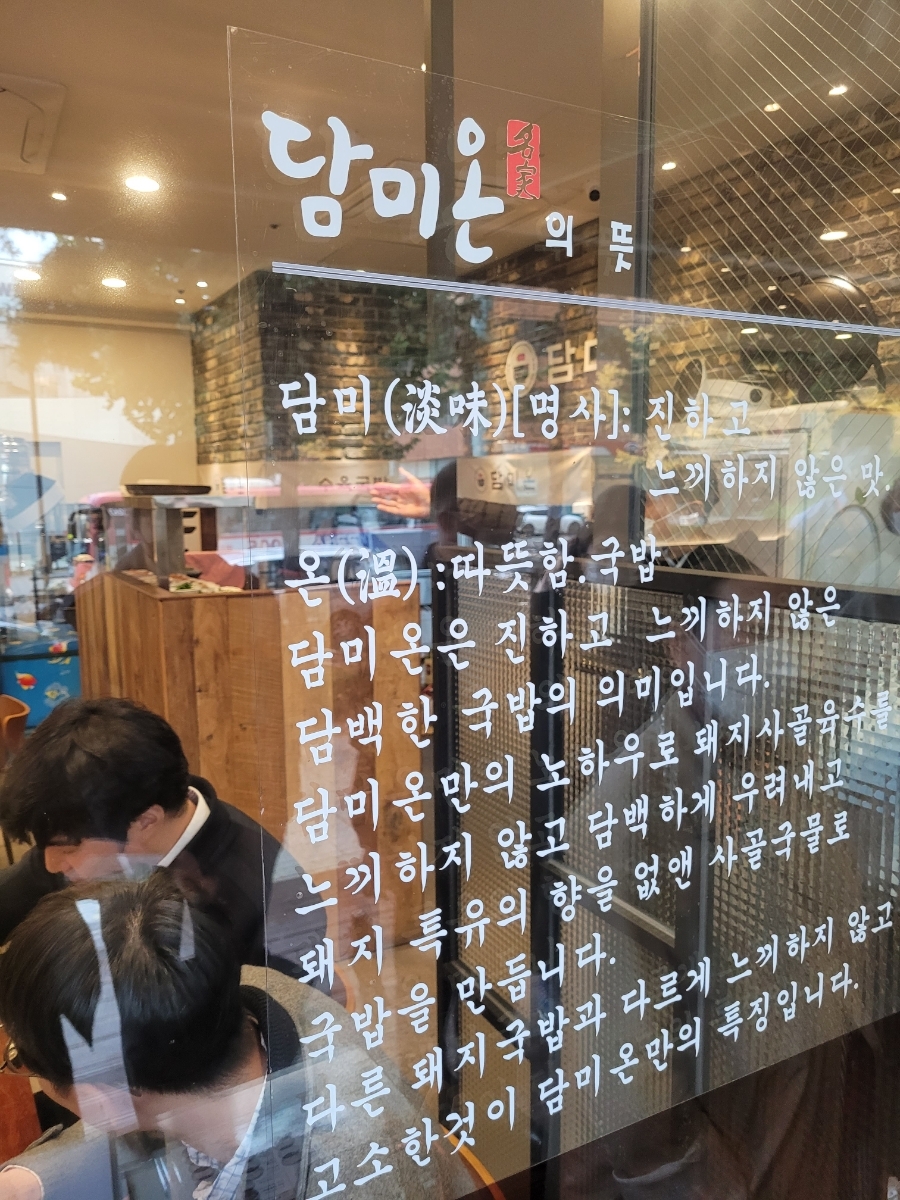 담미온 名家 의 뜻
담미(淡味)[명사]: 진하고
느끼하지 않은 맛.
온(溫) :따뜻함.국밥
담미온은 진하고 느끼하지 않은
담백한 국밥의 의미입니다.
담미온만의 노하우로 돼지사골육수를
느끼하지 않고 담백하게 우려내고
돼지 특유의 향을 없앤 사골국물로
국밥을 만듭니다.
다른 돼지국밥과 다르게 느끼하지 않고
고소한것이 담미온만의 특징입니다.
담미
담미온